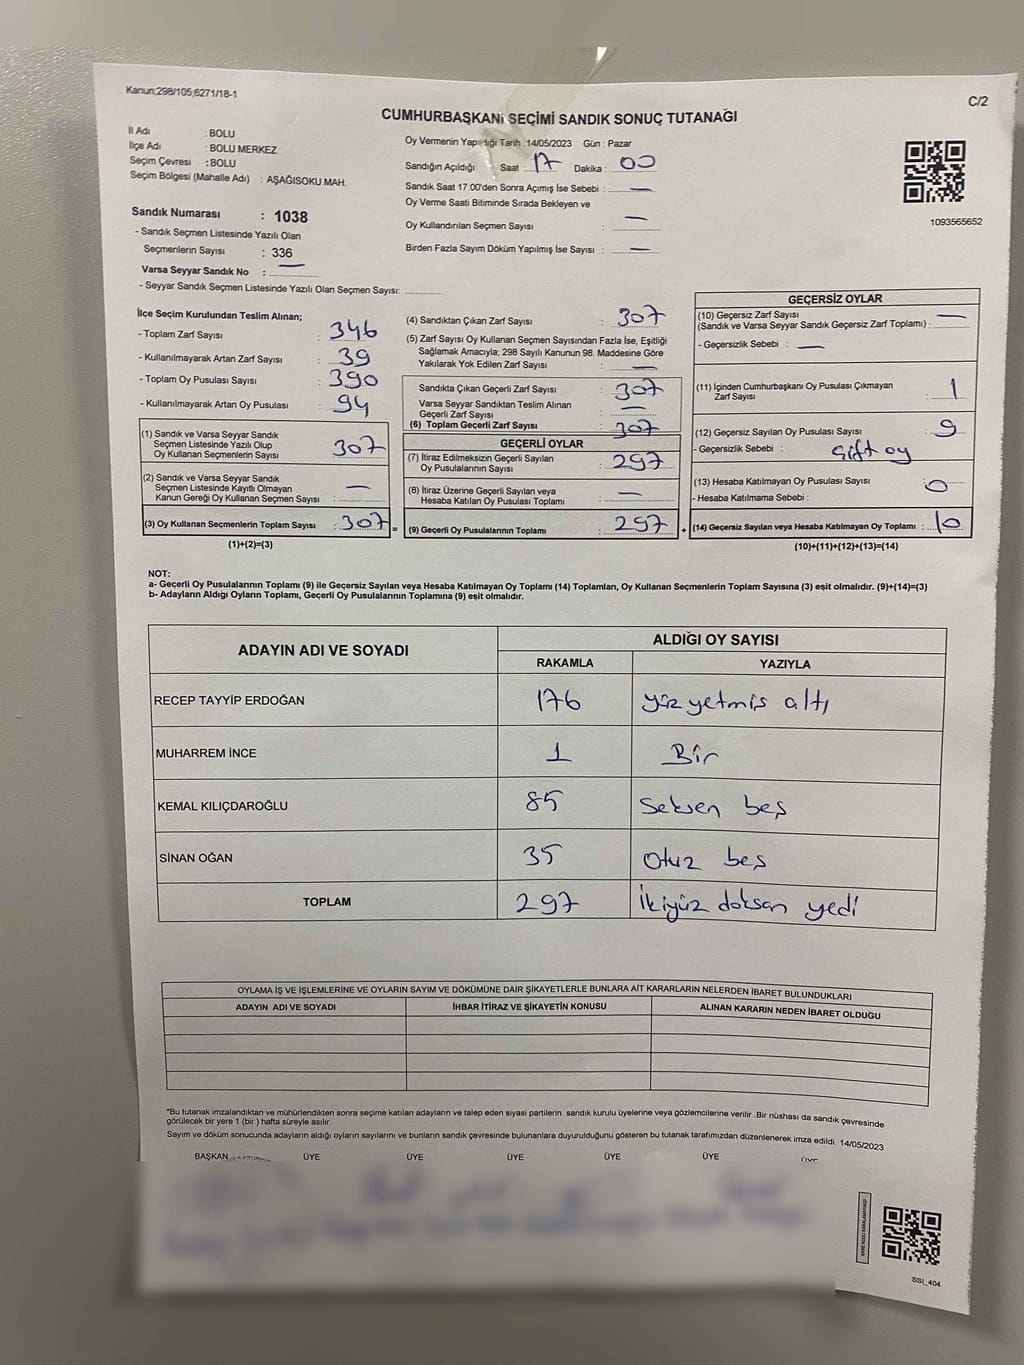 Kanun;298/105;6271/18-1
C/2
CUMHURBAŞKANI SEÇİMİ SANDIK SONUÇ TUTANAĞI
İl Adı : BOLU
İlçe Adı : BOLU MERKEZ
Seçim Çevresi : BOLU
Seçim Bölgesi (Mahalle Adı) : AŞAĞISOKU MAH.
Sandık Numarası : 1038
- Sandık Seçmen Listesinde Yazılı Olan
Seçmenlerin Sayısı : 336
Varsa Seyyar Sandık No : —
- Seyyar Sandık Seçmen Listesinde Yazılı Olan Seçmen Sayısı:
Oy Vermenin Yapıldığı Tarih :14/05/2023 Gün : Pazar
Sandığın Açıldığı Saat : 17 Dakika : 00
Sandık Saat 17:00'den Sonra Açımış İse Sebebi : —
Oy Verme Saati Bitiminde Sırada Bekleyen ve
Oy Kullandırılan Seçmen Sayısı : —
Birden Fazla Sayım Döküm Yapılmış İse Sayısı : —
1093565652
İlçe Seçim Kurulundan Teslim Alınan;
- Toplam Zarf Sayısı : 346
- Kullanılmayarak Artan Zarf Sayısı : 39
- Toplam Oy Pusulası Sayısı : 390
- Kullanılmayarak Artan Oy Pusulası : 94
(1) Sandık ve Varsa Seyyar Sandık
Seçmen Listesinde Yazılı Olup
Oy Kullanan Seçmenlerin Sayısı : 307
(2) Sandık ve Varsa Seyyar Sandık
Seçmen Listesinde Kayıtlı Olmayan
Kanun Gereği Oy Kullanan Seçmen Sayısı : —
(3) Oy Kullanan Seçmenlerin Toplam Sayısı : 307 =
(1)+(2)=(3)
(4) Sandıktan Çıkan Zarf Sayısı : 307
(5) Zarf Sayısı Oy Kullanan Seçmen Sayısından Fazla İse, Eşitliği
Sağlamak Amacıyla; 298 Sayılı Kanunun 98. Maddesine Göre
Yakılarak Yok Edilen Zarf Sayısı : —
Sandıkta Çıkan Geçerli Zarf Sayısı : 307
Varsa Seyyar Sandıktan Teslim Alınan
Geçerli Zarf Sayısı : —
(6) Toplam Geçerli Zarf Sayısı : 307
GEÇERLİ OYLAR
(7) İtiraz Edilmeksizin Geçerli Sayılan
Oy Pusulalarının Sayısı : 297
(8) İtiraz Üzerine Geçerli Sayılan veya
Hesaba Katılan Oy Pusulası Toplamı : —
(9) Geçerli Oy Pusulalarının Toplamı : 297 +
GEÇERSİZ OYLAR
(10) Geçersiz Zarf Sayısı
(Sandık ve Varsa Seyyar Sandık Geçersiz Zarf Toplamı) : —
- Geçersizlik Sebebi : —
(11) İçinden Cumhurbaşkanı Oy Pusulası Çıkmayan
Zarf Sayısı : 1
(12) Geçersiz Sayılan Oy Pusulası Sayısı : 9
- Geçersizlik Sebebi : Çift oy
(13) Hesaba Katılmayan Oy Pusulası Sayısı : 0
- Hesaba Katılmama Sebebi :
(14) Geçersiz Sayılan veya Hesaba Katılmayan Oy Toplamı : 10
(10)+(11)+(12)+(13)=(14)
NOT:
a- Geçerli Oy Pusulalarının Toplamı (9) ile Geçersiz Sayılan veya Hesaba Katılmayan Oy Toplamı (14) Toplamları, Oy Kullanan Seçmenlerin Toplam Sayısına (3) eşit olmalıdır. (9)+(14)=(3)
b- Adayların Aldığı Oyların Toplamı, Geçerli Oy Pusulalarının Toplamına (9) eşit olmalıdır.
ADAYIN ADI VE SOYADI
ALDIĞI OY SAYISI
RAKAMLA YAZIYLA
RECEP TAYYİP ERDOĞAN 176 yüz yetmiş altı
MUHARREM İNCE 1 Bir
KEMAL KILIÇDAROĞLU 85 Seksen beş
SİNAN OĞAN 35 Otuz beş
TOPLAM 297 İkiyüz doksan yedi
OYLAMA İŞ VE İŞLEMLERİNE VE OYLARIN SAYIM VE DÖKÜMÜNE DAİR ŞİKAYETLERLE BUNLARA AİT KARARLARIN NELERDEN İBARET BULUNDUKLARI
ADAYIN ADI VE SOYADI İHBAR İTİRAZ VE ŞİKAYETİN KONUSU ALINAN KARARIN NEDEN İBARET OLDUĞU
*Bu tutanak imzalandıktan ve mühürlendikten sonra seçime katılan adayların ve talep eden siyasi partilerin sandık kurulu üyelerine veya gözlemcilerine verilir .Bir nüshası da sandık çevresinde
görülecek bir yere 1 (bir ) hafta süreyle asılır.
Sayım ve döküm sonucunda adayların aldığı oyların sayılarını ve bunların sandık çevresinde bulunanlara duyurulduğunu gösteren bu tutanak tarafımızdan düzenlenerek imza edildi. 14/05/2023
BAŞKAN ÜYE ÜYE ÜYE ÜYE ÜYE
SSİ_404